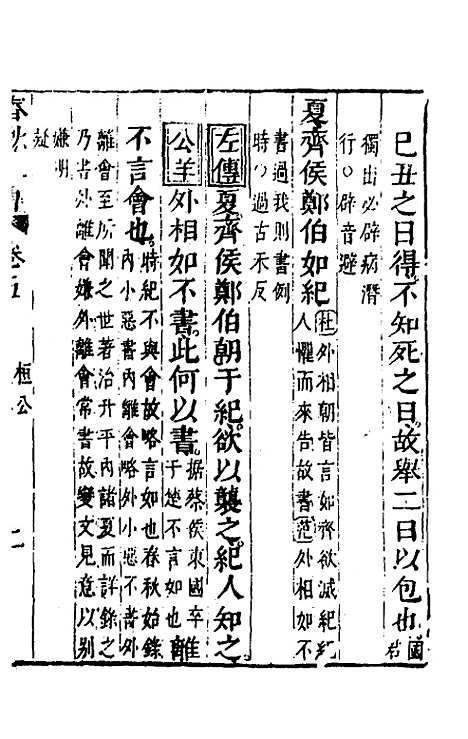 己丑之日得不知死之日故舉二日以包也國君
獨出必辟病潛
行○辟音避
夏齊侯鄭伯如紀杜外相朝皆言如齊欲滅紀紀
人懼而來告故書范外相如不
書過我則書例
時○過古禾反
左傳夏齊侯鄭伯朝于紀欲以襲之紀人知之
公羊外相如不書此何以書據蔡侯東國卒
于楚不言如也離
不言會也時紀不與會故略言如也春秋始錄
內小惡書內離會略外小惡不書外
離會至所聞之世著治升平內諸夏而詳錄之
乃書外離會嫌外離會常書故變文見意以別
嫌明
疑
春秋 卷五 桓公 二